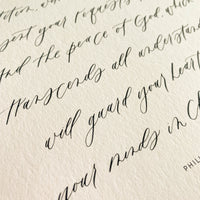 present your requests
and the peace of God, which
transcends all understand
will guard your heart
your minds in Ch
PHIL